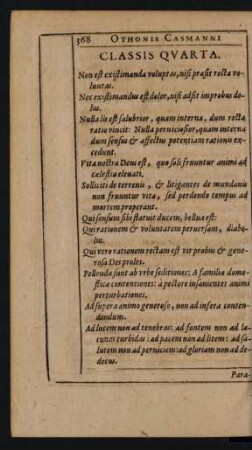 568 OTHONIS CASMANNI
CLASSIS QVARTA.
Non est existimanda voluptas, nisi præsit recta vo-
luntas.
Nec existimandus est dolor, nisi adsit improbus do-
lus.
Nulla lis est salubrior, quam interna, dum recta
ratio vincit: Nulla perniciosior, quam interna
dum sensus & affectus potentiam rationis ex-
cedunt.
Vita nostra Deus est, quo soli fruuntur animi ad
cælestia eleuati.
Solliciti de terrenis, & litigantes de mundanis
non fruuntur vita, sed perdendo tempus ad
mortem properant.
Qui sensum sibi statuit ducem, bellua est:
Qui rationem & voluntatem peruersam, diabo-
lus.
Qui vero rationem rectam est vir probus & gene-
rosa Dei proles.
Pellendæ sunt ab vrbe seditiones: A familia dome-
sticæ contentiones: à pectore insanientes animi
perturbationes.
Ad supera animo generoso, non ad infera conten-
dendum.
Ad lucem non ad tenebras: ad fontem non ad la-
cunas turbidas: ad pacem non ad litem: ad sa-
lutem non ad perniciem: ad gloriam non ad de-
decus.
Para-